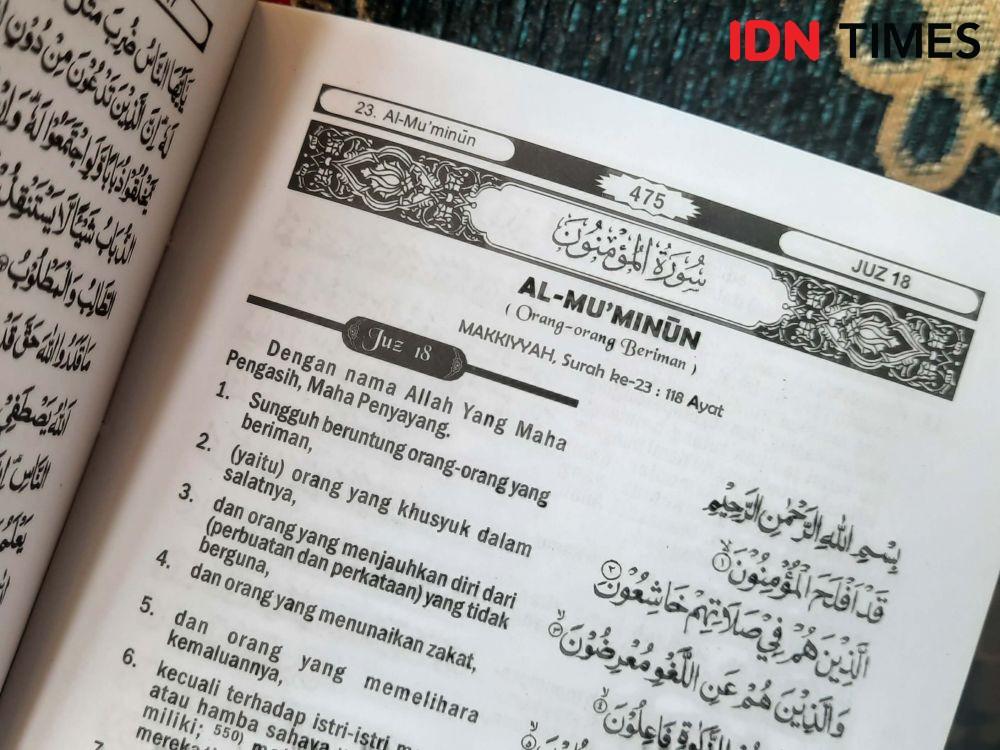 IDN TIMES
يٰٓاَيُّهَا النَّاسُ ضُرِبَ مَثَلٌ
لَهٗ ۗاِنَّ الَّذِيْنَ تَدْعُوْنَ مِنْ دُوْنِ
يَّخْلُقُوْا ذُبَابًا وَّلَوِ اجْتَمَعُوْا لَهٗ ۗ
الذُّبَابُ شَيْـًٔا لَّا يَسْتَنْقِذُ
الطَّالِبُ وَالْمَطْلُوْبُ
مَا قَدَرُوا اللّٰهَ حَقَّ
اَللّٰهُ يَصْطَفِيْ
النَّاسِ
23. Al-Mu'minūn
475
JUZ 18
سُوْرَةُ الْمُؤْمِنُوْنَ
AL-MU'MINŪN
( Orang-orang Beriman )
MAKKIYYAH, Surah ke-23 : 118 Ayat
Juz 18
Dengan nama Allah Yang Maha
Pengasih, Maha Penyayang.
1. Sungguh beruntung orang-orang yang
beriman,
2. (yaitu) orang yang khusyuk dalam
salatnya,
3. dan orang yang menjauhkan diri dari
(perbuatan dan perkataan) yang tidak
berguna,
4. dan orang yang menunaikan zakat,
5. dan orang yang memelihara
kemaluannya,
6. kecuali terhadap istri-istri
atau hamba sahaya
miliki; 550)
7.
بِسْمِ اللّٰهِ الرَّحْمٰنِ الرَّحِيْمِ
قَدْ اَفْلَحَ الْمُؤْمِنُوْنَ ۙ ١
الَّذِيْنَ هُمْ فِيْ صَلَاتِهِمْ خَاشِعُوْنَ ٢
وَالَّذِيْنَ هُمْ عَنِ اللَّغْوِ مُعْرِضُوْنَ ۙ ٣
لِلزَّكٰوةِ فَاعِلُوْنَ ۙ ٤